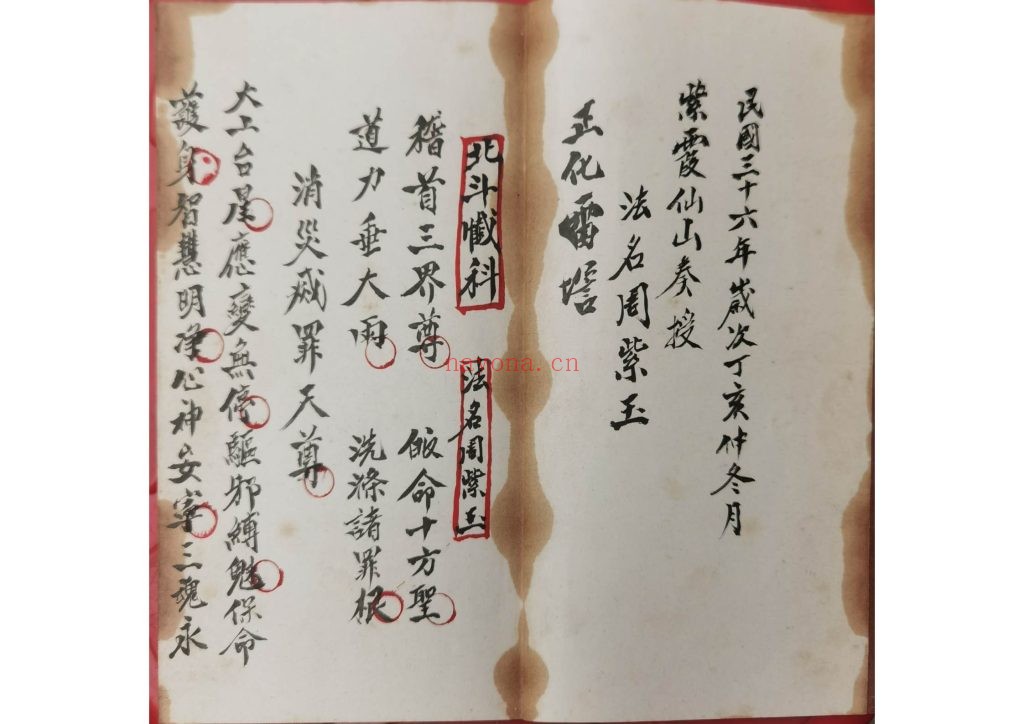 民國三十六年歲次丁亥仲冬月
紫霞仙山奏授
法名周紫玉
正化雷壇
北斗懺科 法名周紫玉
稽首三界尊 皈命十方聖
道力垂大雨 洗滌諸罪根
消災滅罪天尊
大上台星應變無停驅邪縛魅保命
護身智慧明淨心神安寧三魂永
nayona.cn